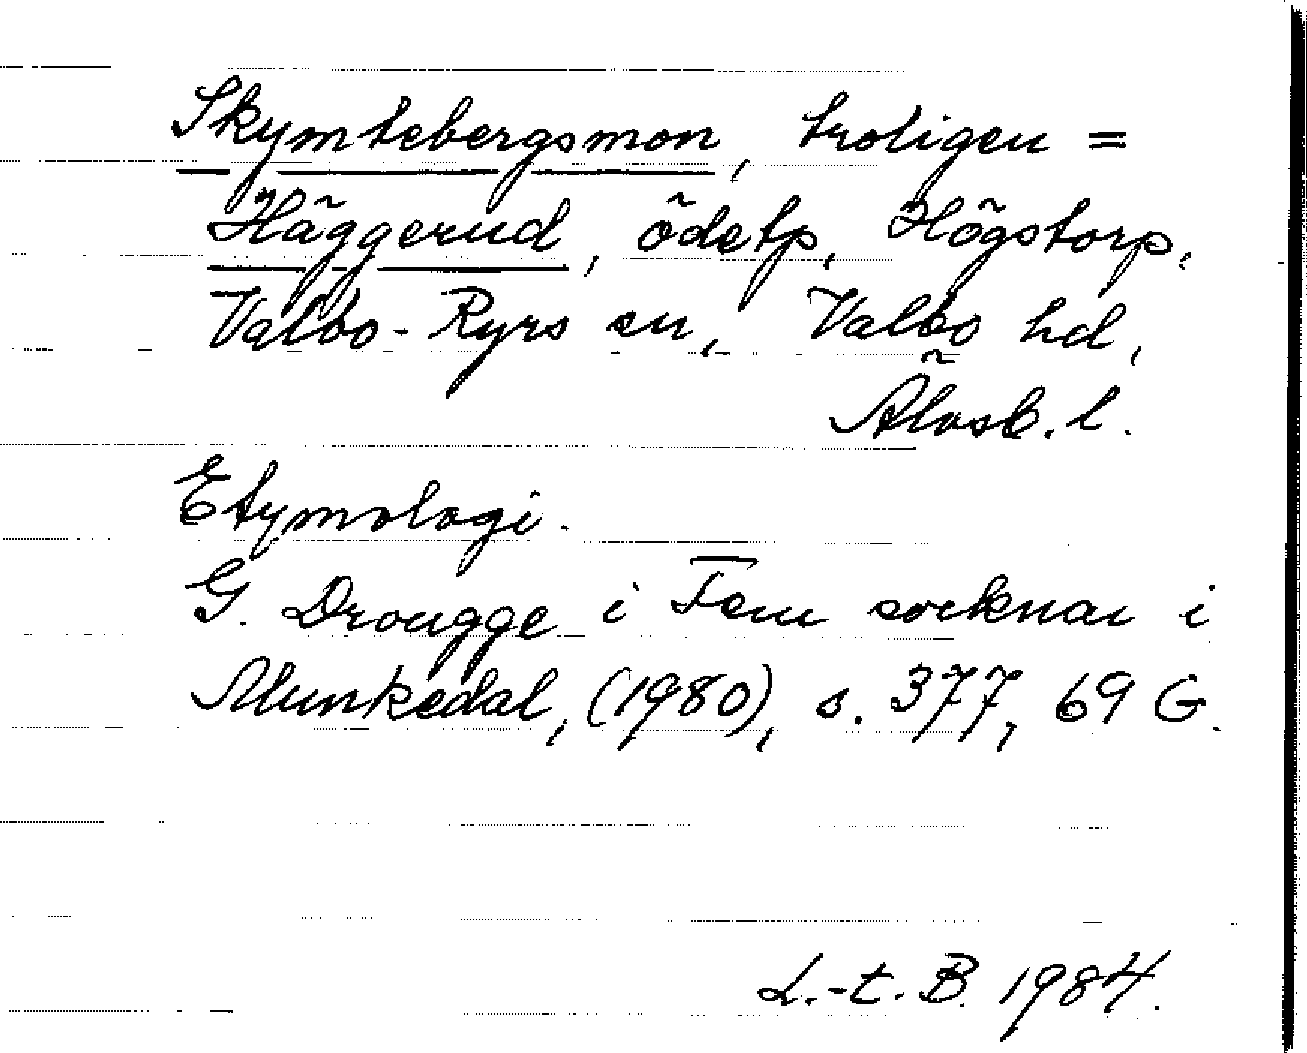 Skymtebergsmon, troligen =
Häggerud, ödetp, Högstorp,
Valbo-Ryrs sn, Valbo hd,
Älvsb. l.
Etymologi.
G. Drougge i Fem socknar i
Munkedal, (1980), s. 377, 69 G.
L.-t. B. 1984.